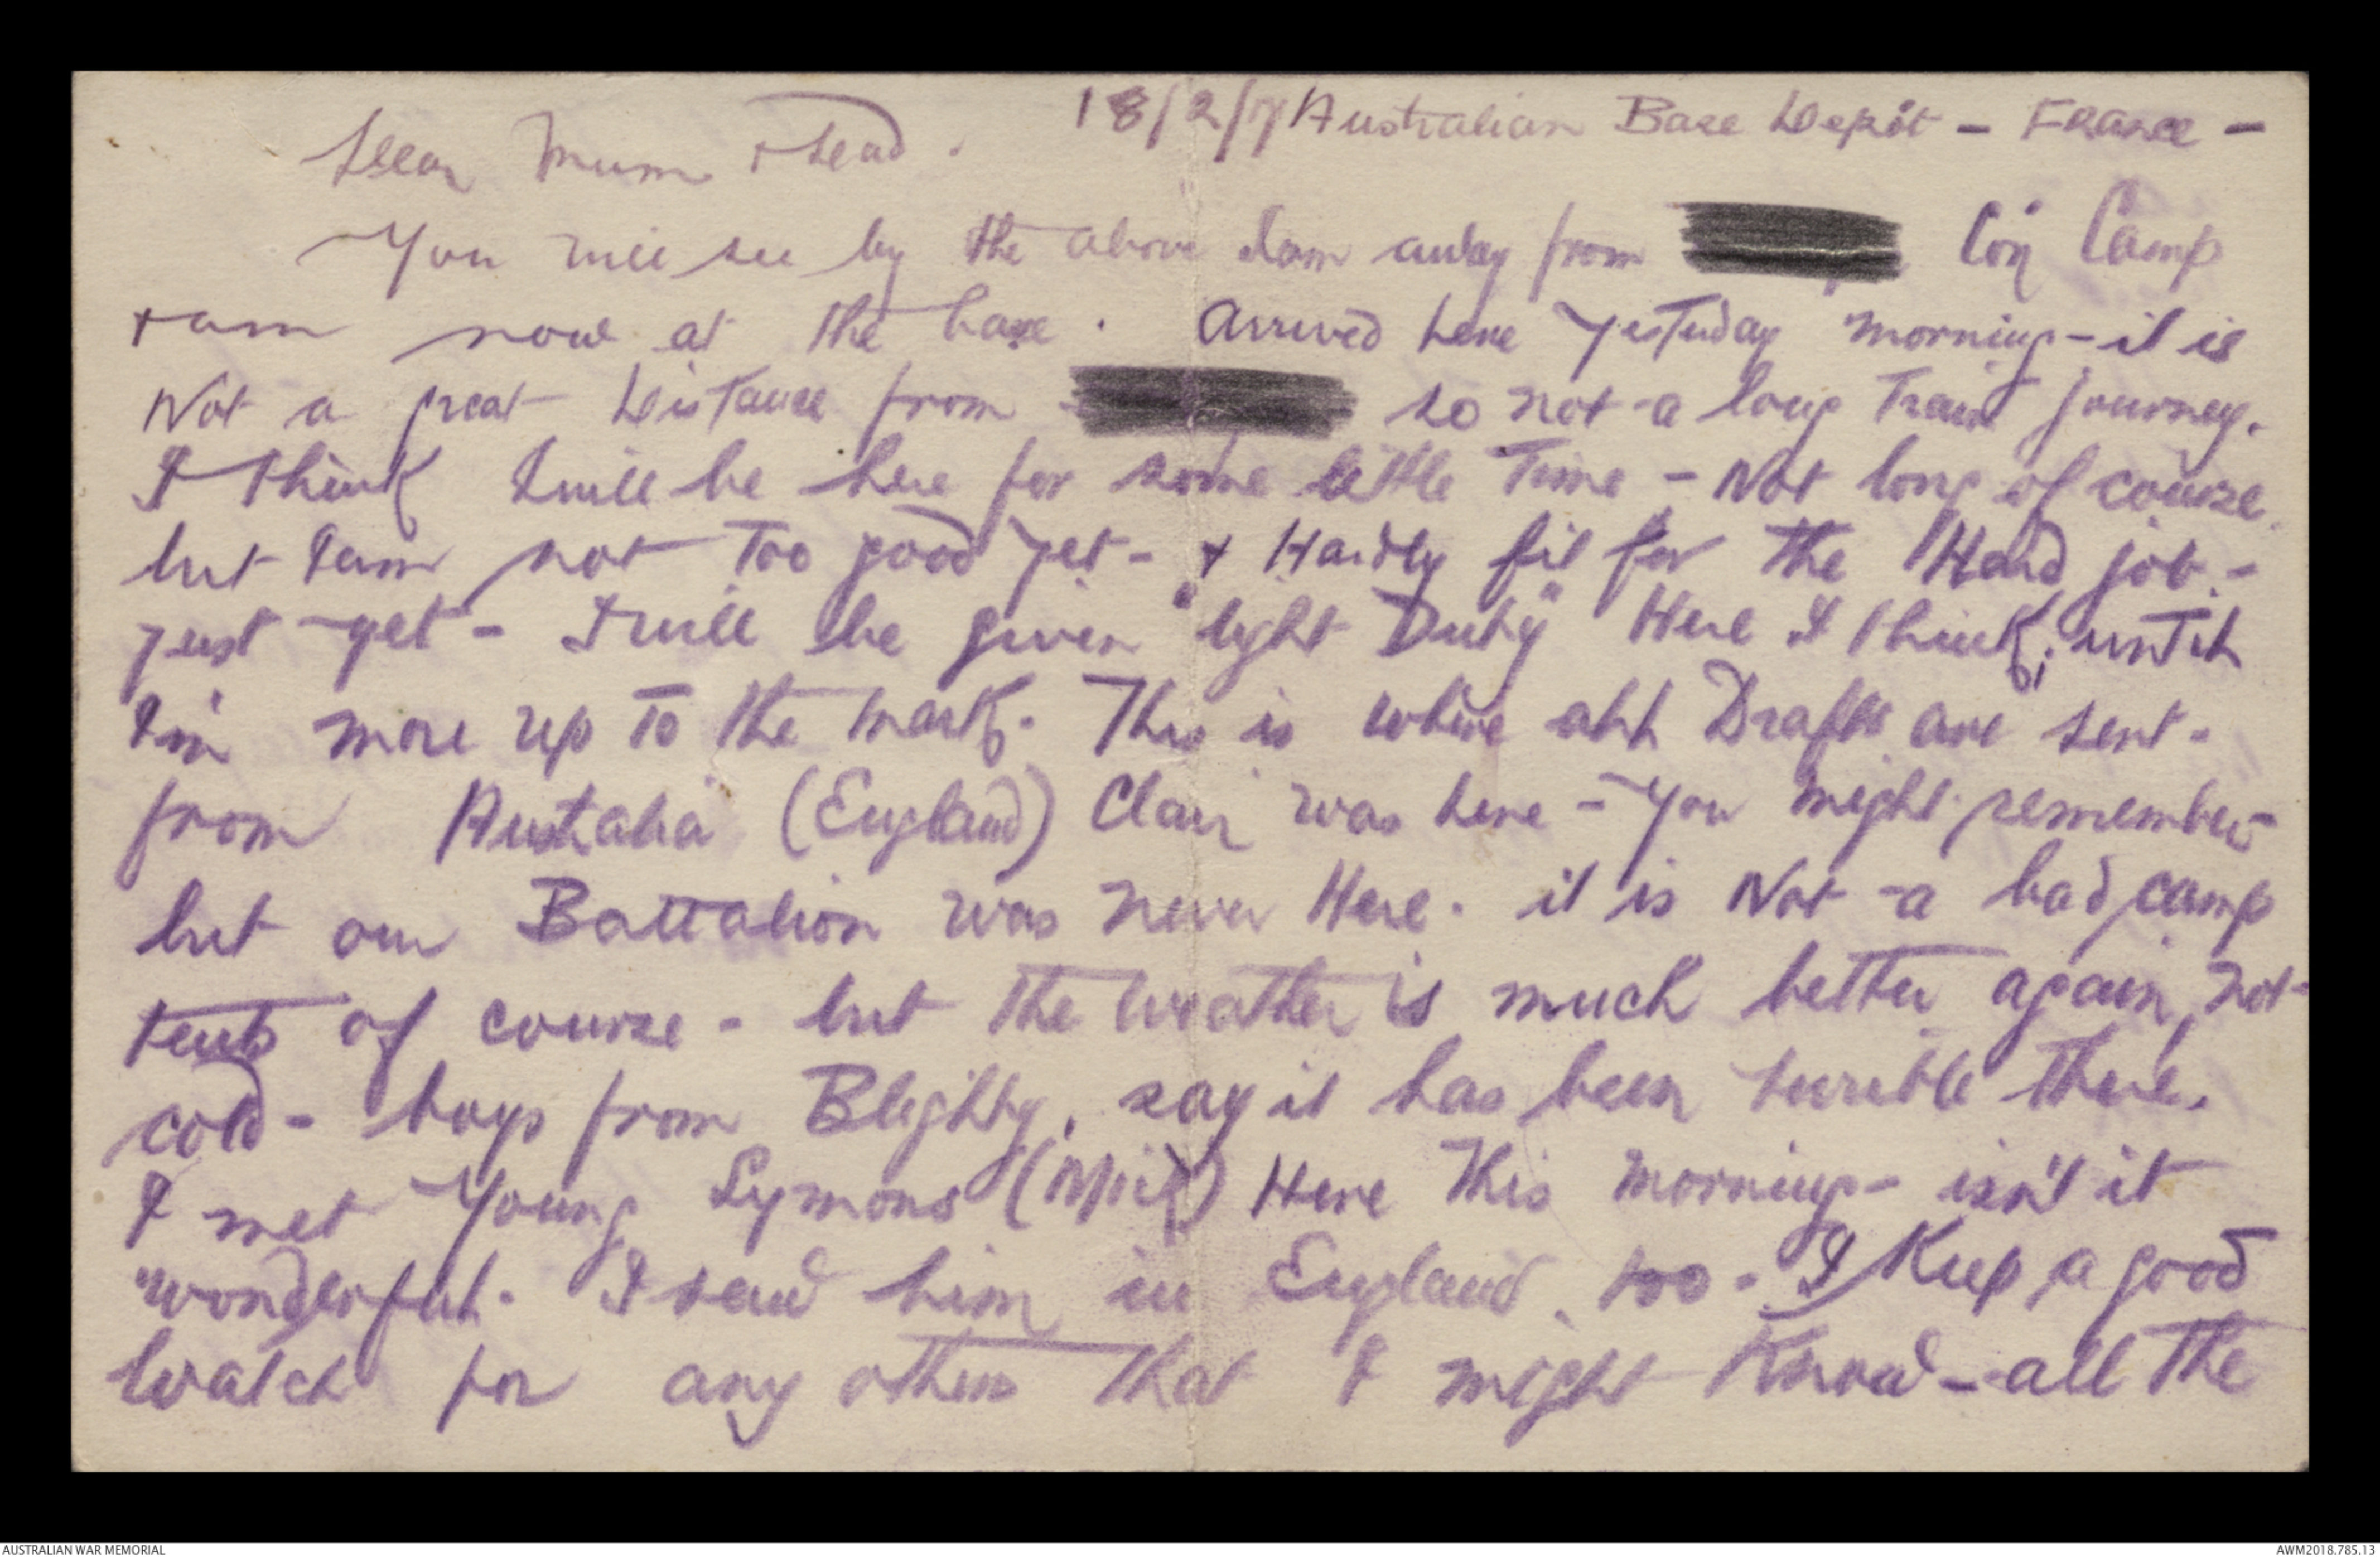 18/2/7 Australian Base Depôt - France -
Dear Mum & Dad.
You will see by the above I am away from Con Camp
& am now at the base. Arrived here yesterday morning - it is
Not a great distance from so not a long Train journey.
I think I will be here for some little Time - Not long of course.
but I am not Too good yet - & Hardly fit for the Hard job. -
just yet - I will be given "light Duty" Here I think, until
I'm more up To the mark. This is where all Drafts are sent.
from Austalia (England) Clair was here - You might remember -
but our Battalion was never Here. it is Not a bad camp
tents of course - but the weather is much better again, not
cold - boys from Blighty, say it has been terrible there.
I met Young Symons Here This morning - isn't it
wonderful. I saw him in England, too. I Keep a good
Watch for any others that I might Know - all The
AUSTRALIAN WAR MEMORIAL
AWM2018.785.13